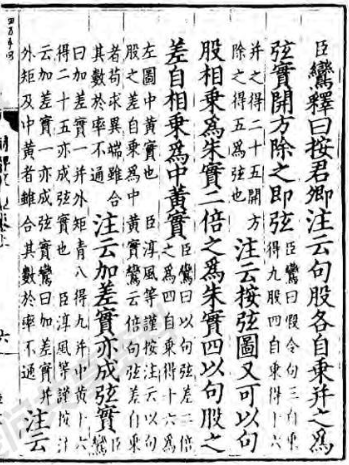 臣鸞釋曰按君卿注云句股各自乘并之爲
弦實開方除之即弦臣鸞曰假令句三自乘得九股四自乘得十六
并之得二十五開方除之得五爲弦也注云按弦圖又可以句
股相乘爲朱實二倍之爲朱實四以句股之
差自相乘爲中黃實臣鸞曰以句弦差二倍之爲四自乘得十六爲
左圖中黃實也臣淳風等謹按注云以句股之差自乘爲中黃實鸞云倍句弦差自乘
者苟求異端雖合其數於率不通注云加差實亦成弦實臣鸞
曰加差實一并外矩青八得九并中黃十六得二十五亦成弦實也臣淳風等謹按注
云加差實一亦成弦實鸞曰加差實并外矩及中黃者雖合其數於率不通注云